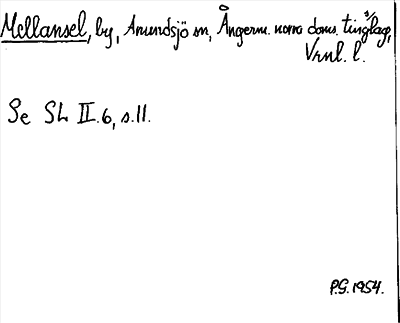 Mellansel, by, Anundsjö sn, Ångerm. norra doms. tingslag,
Vrnl. l.
Se SL II.6, s.11.
P.G. 1954.